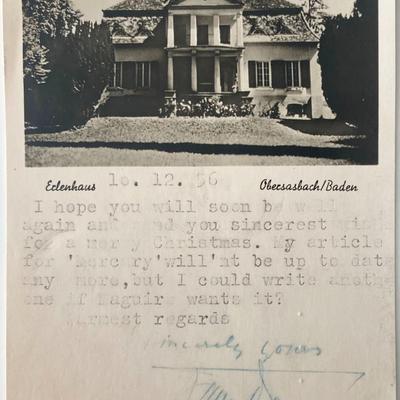 Erlenhaus 10. 12. 56 Obersasbach/Baden
I hope you will soon be well
again and you sincerest
for a mery Christmas. My article
for 'Mercury'will'nt be up to date
any more,but I could write
one if Maguire wants it?
armest regards
sincerely yours